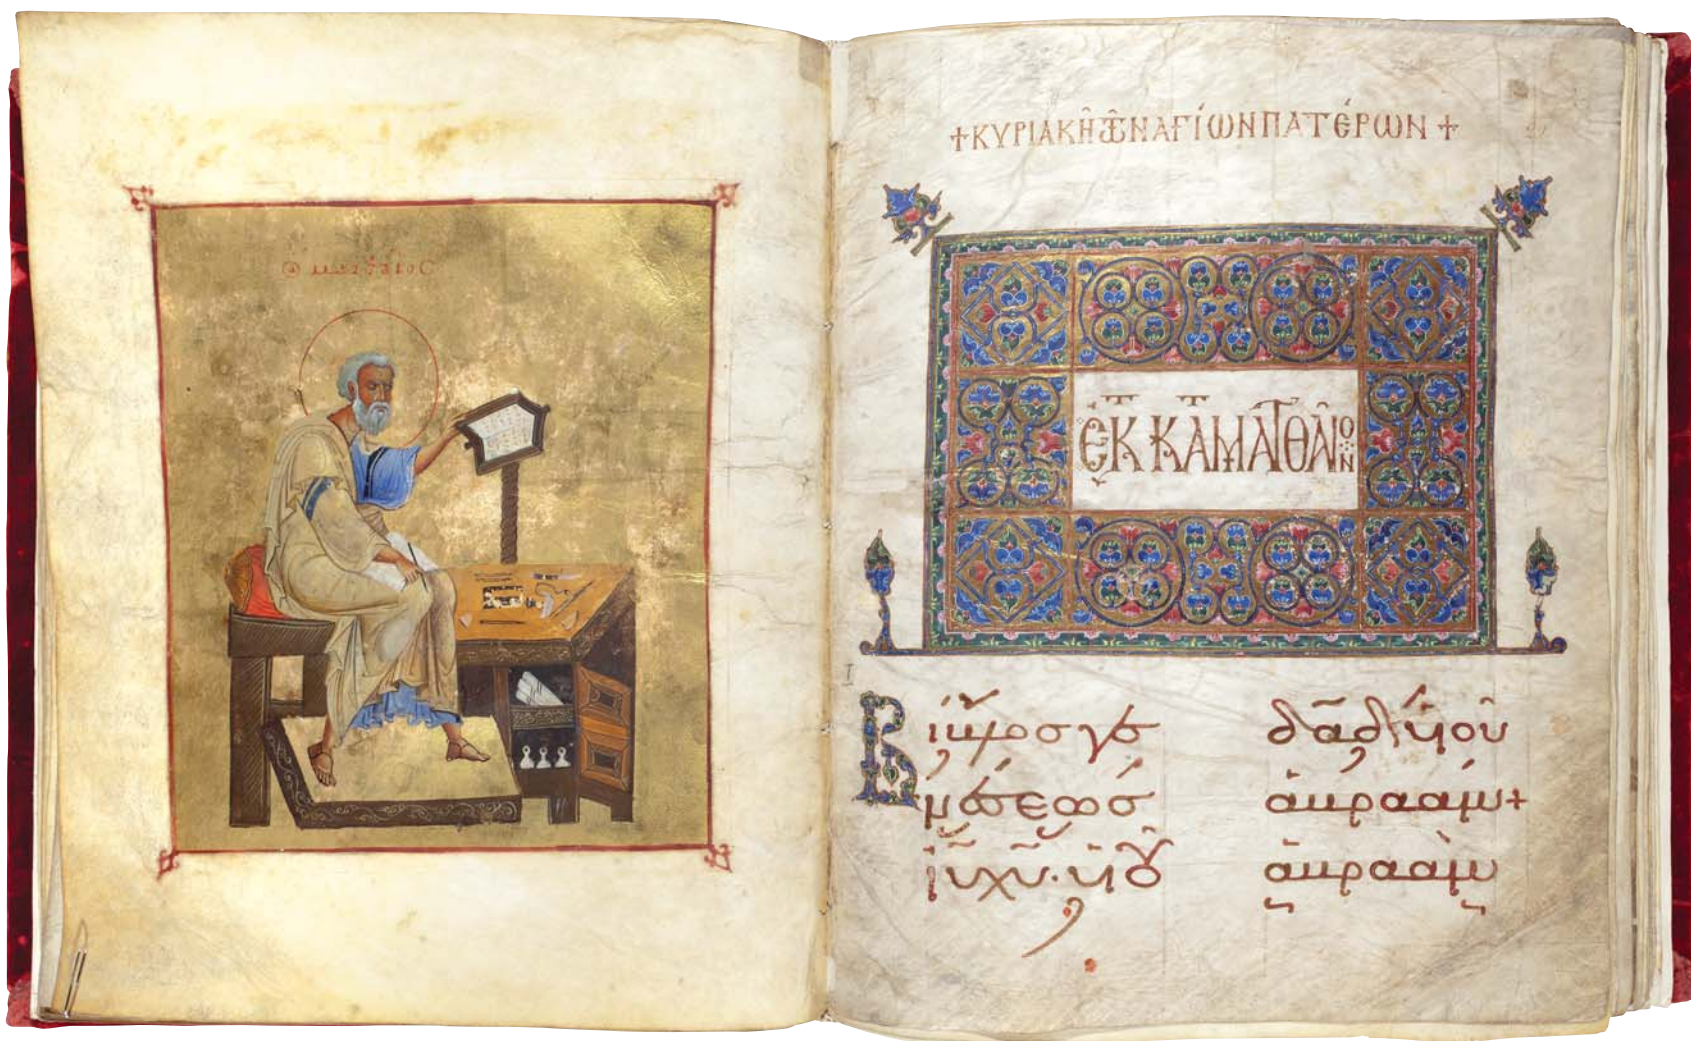 ὁ ματθαῖος
+ ΚΥΡΙΑΚῊ ΤῶΝ ἉΓΊΩΝ ΠΑΤΈΡΩΝ +
ἘΚ Τ ΚΑΤ ΜΑΤΘΑῖΟΝ
Βίβλος γε
νέσεως
ἰῦ χῦ· υἱοῦ
δᾱδ υἱοῦ
ἀβραάμ +
ἀβραὰμ